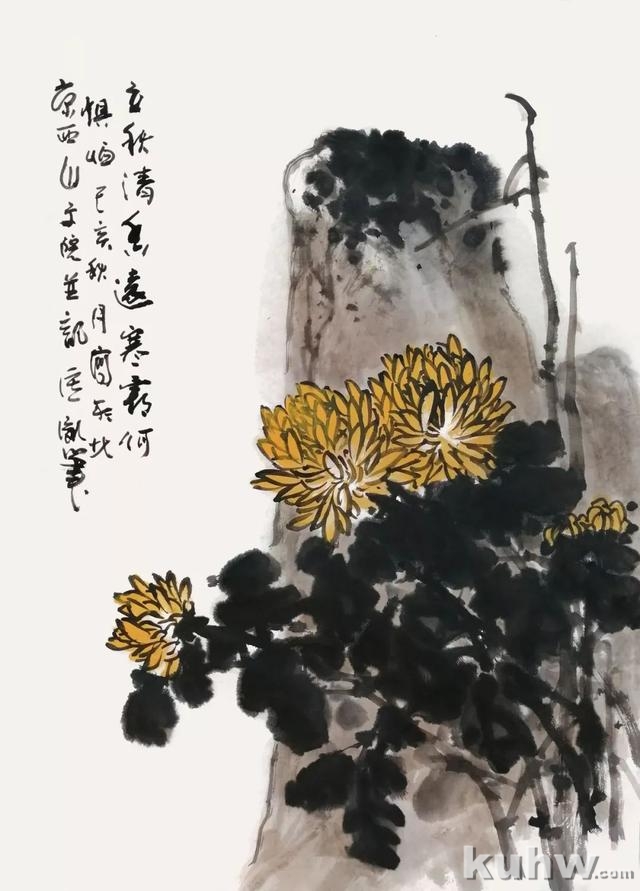 立秋清香远寒霜何
惧 己亥秋月写于北
京西山文院并记
kuhw.com